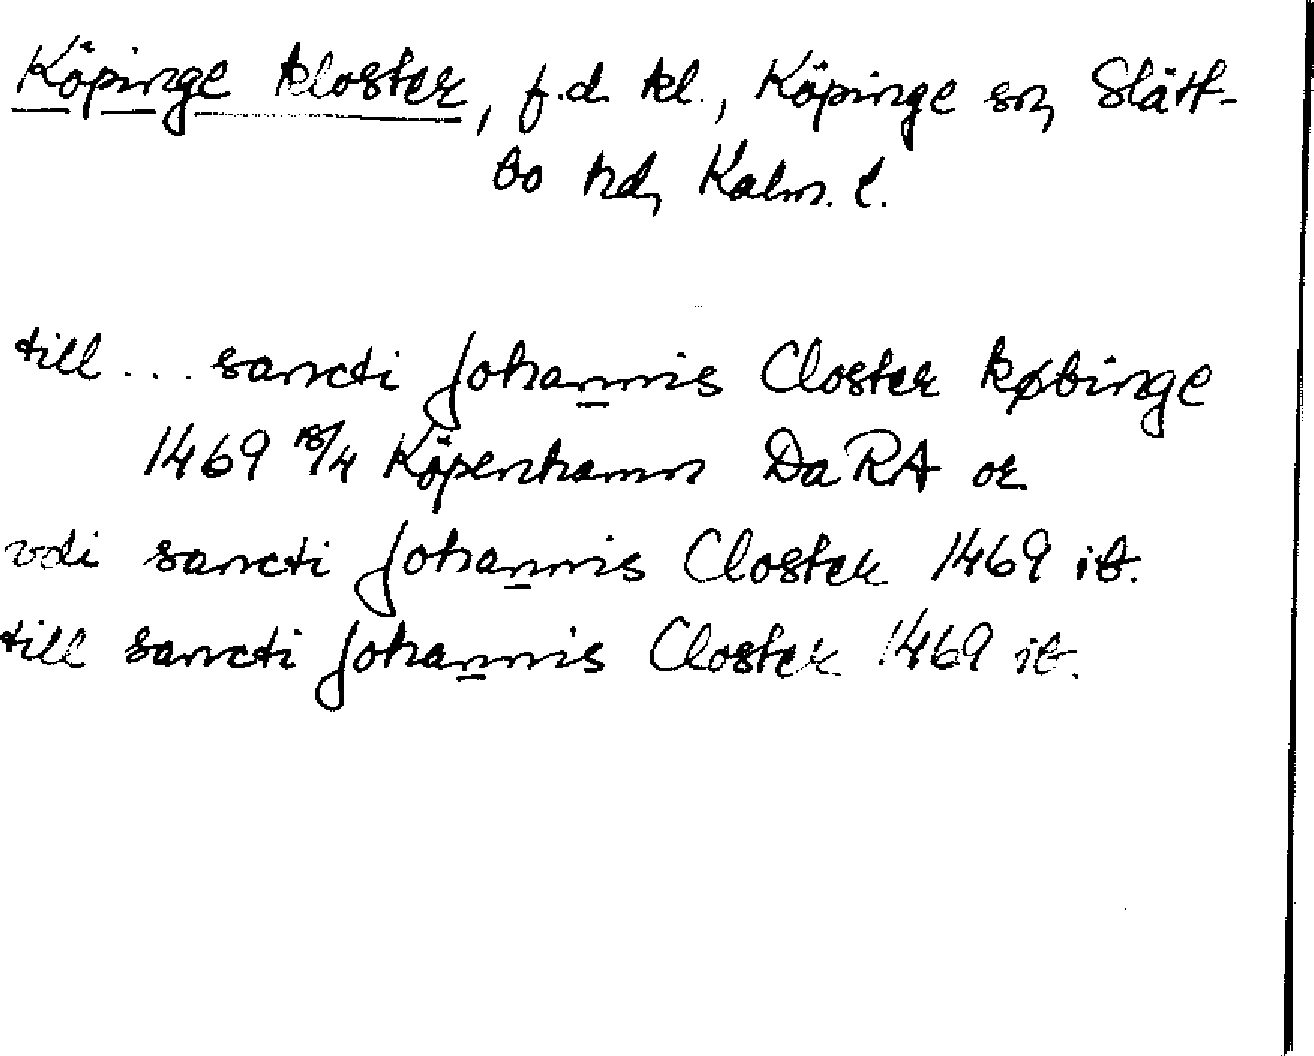 Köpinge kloster, f.d. kl., Köpinge sn, Slätt-
bo hd, Kalm. l.
till ... sancti Johannis Closter købinge
1469 18/4 Köpenhamn DaRA or
vdi sancti Johannis Closter 1469 ib.
till sancti Johannis Closter 1469 ib.